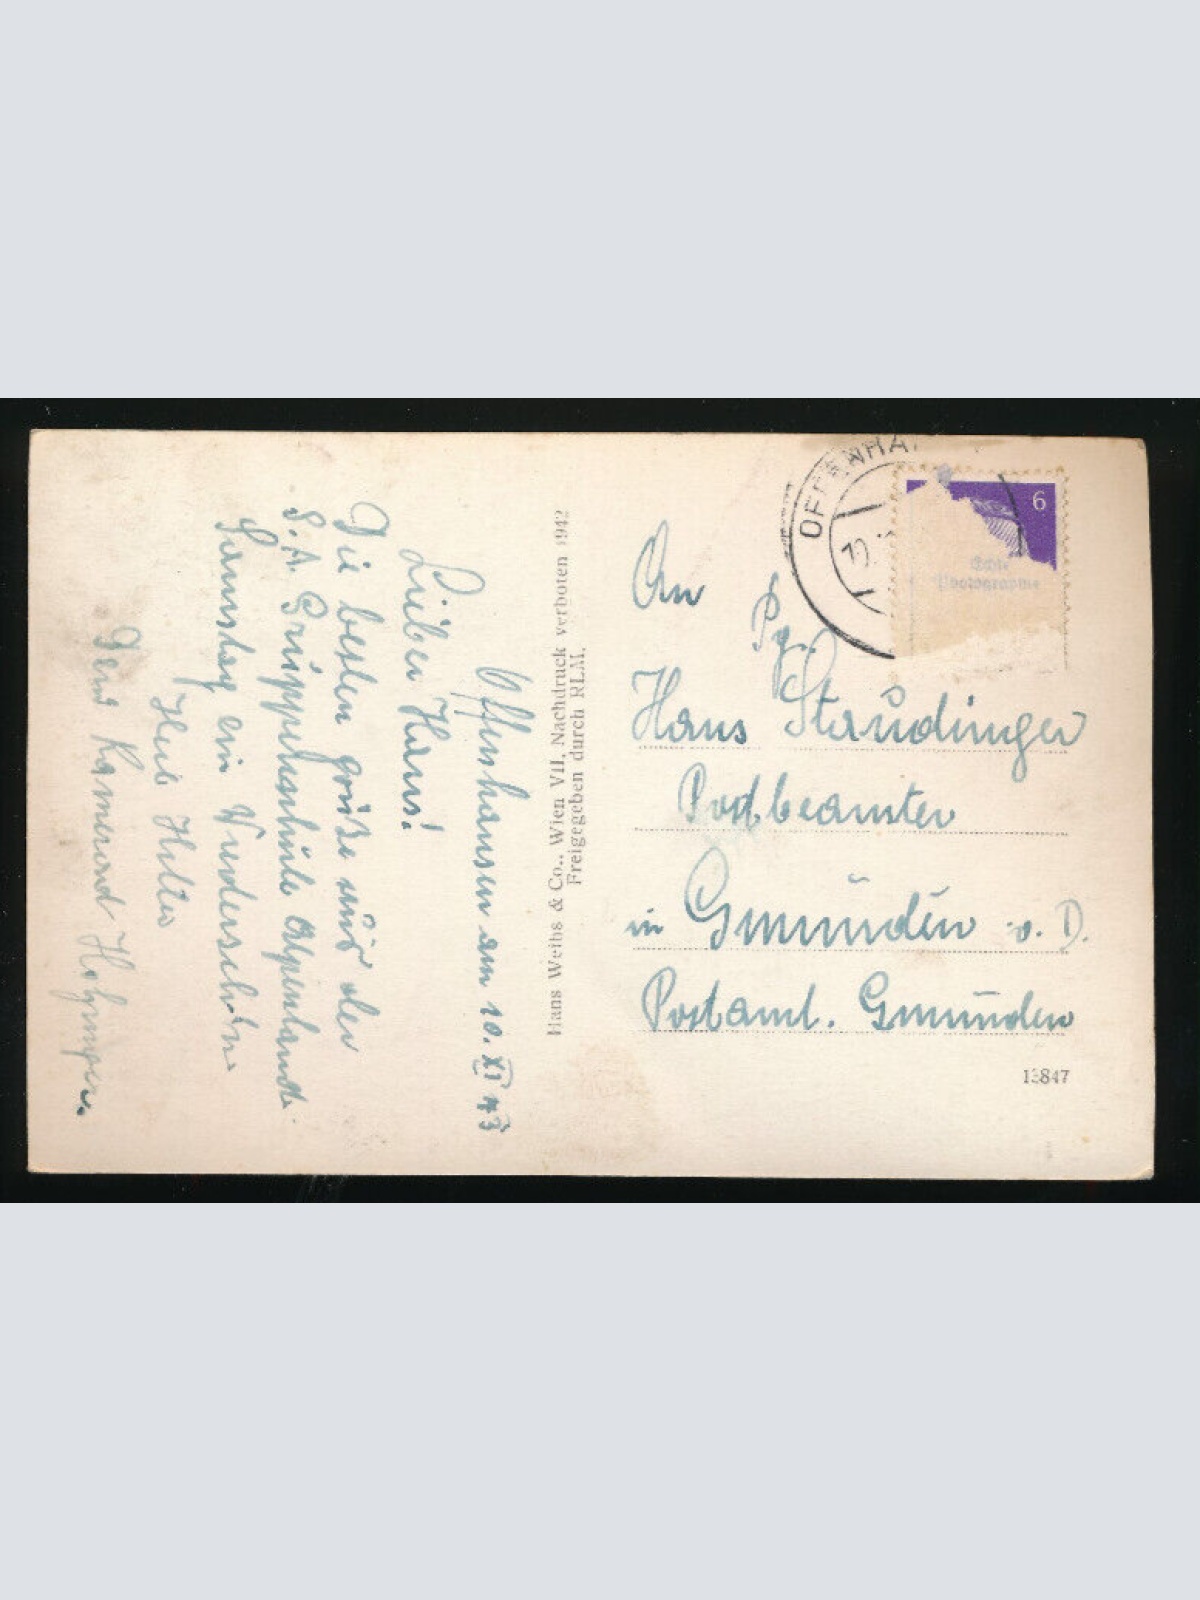 Offenhausen am 10. XI 43
Lieber Hans!
Die besten grüße aus der
S.A. Gruppenschule Alpenland.
Samstag ein Wiedersehn
Heil Hitler
Dein Kamerad
Hans Weibs & Co., Wien VII, Nachdruck verboten 1942
Freigegeben durch RLM.
OFFENHA
6
Echte
Photographie
An
Pg.
Hans Staudinger
Postbeamter
in Gmunden o. D.
Postamt. Gmunden
13847